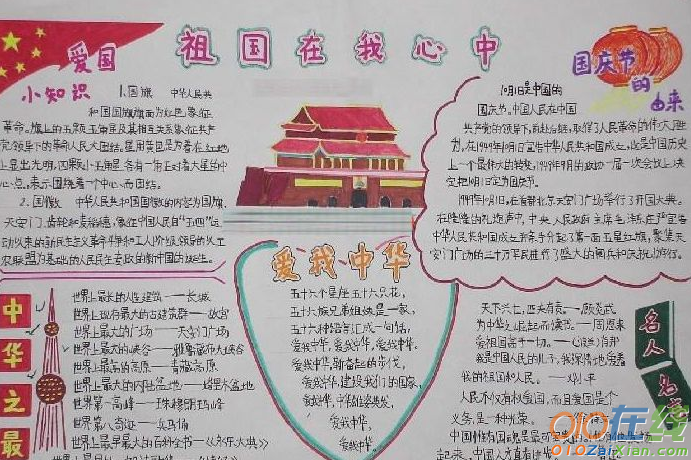 祖国在我心中
爱国
小知识
1.国旗 中华人民共
和国国旗旗面为红色,象征
革命。旗上的五颗五角星及其相互关系象征共产
党领导下的革命人民大团结。星用黄色是为着在红地
上显出光明,四颗小五角星各有一角正对着大星的中
心点,表示围绕着一个中心而团结。
2.国徽 中华人民共和国国徽的内容为国旗、
天安门、齿轮和麦稻穗,象征中国人民自“五四”运
动以来的新民主主义革命斗争和工人阶级领导的以工
农联盟为基础的人民民主专政的新中国的诞生。
国庆节
的
由来
10月1日是中国的
国庆节。中国人民在中国
共产党的领导下,前赴后继,取得了人民革命的伟大胜
利,在1949年10月1日宣告中华人民共和国成立,这是中国历史
上一个最伟大的转变,1949年9月的政协一届一次会议上决
定把10月1日定为国庆节。
1949年10月1日,在首都北京天安门广场举行了开国大典。
在隆隆的礼炮声中,中央人民政府主席毛泽东庄严宣告
中华人民共和国成立并亲手升起了第一面五星红旗。聚集天
安门广场的三十万军民进行了盛大的阅兵和庆祝游行。
爱我中华
五十六个星座五十六只花,
五十六族兄弟姐妹是一家,
五十六种语言汇成一句话,
爱我中华,爱我中华,爱我中华。
爱我中华,健奋起的步伐,
爱我中华,建设我们的国家,
爱我中华,中华雄姿英发,
爱我中华,
爱我中华。
中华之最
世界上最长的人生建筑——长城
世界上现存最大的古建筑群——故宫
世界上最大的广场——天安门广场
世界上最大的峡谷——雅鲁藏布大峡谷
世界上最高的高原——青藏高原
世界上最大的内陆盆地——塔里木盆地
世界第一高峰——珠穆朗玛峰
世界第八奇迹——兵马俑
世界上最早最大的百科全书——《永乐大典》
名人名言
天下兴亡,匹夫有责。——顾炎武
为中华之崛起而读书。——周恩来
爱祖国高于一切。——
我是中国人民的儿子,我深情地爱着
我的祖国和人民。——邓小平
人民不仅有权爱国,而且爱国是个
义务,是一种光荣。
010在线
010ZaiXian.com